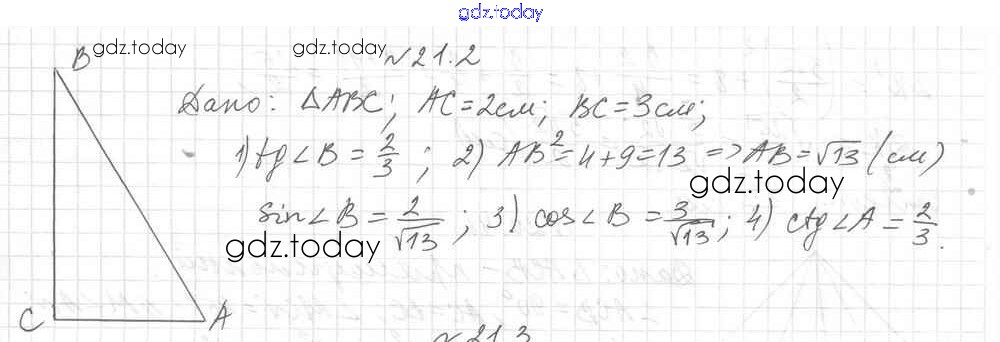 gdz.today
B gdz.today gdz.today №21.2
Дано: △ABC; AC=2см; BC=3см;
1) tg∠B = 2/3; 2) AB²=4+9=13 => AB=√13 (см)
gdz.today
sin∠B = 2/√13; 3) cos∠B = 3/√13; 4) ctg∠A = 2/3.
gdz.today
C A
№21.3